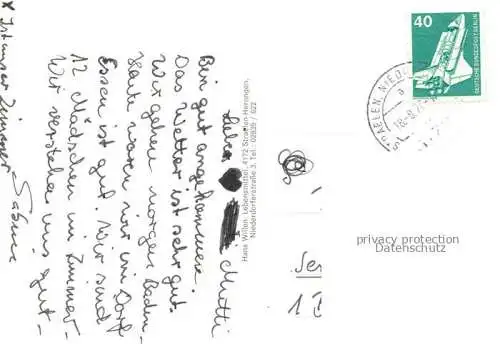 Liebe Mutti
Bin gut angekommen.
Das Wetter ist sehr gut.
Wir gehen morgen Baden.
Heute waren wir im Dorf
Essen ist gut. Wir sind
12 Mädschen im Zimmer.
Wir verstehen uns gut.
Sabine
x Ist unser Zimmer
Hans Willen, Lebensmittel, 4172 Straelen-Herongen,
Niederdorferstraße 3, Tel.: 02839 / 622
40
DEUTSCHE BUNDESPOST BERLIN
STRAELEN, NIEDE
privacy protection
Datenschutz